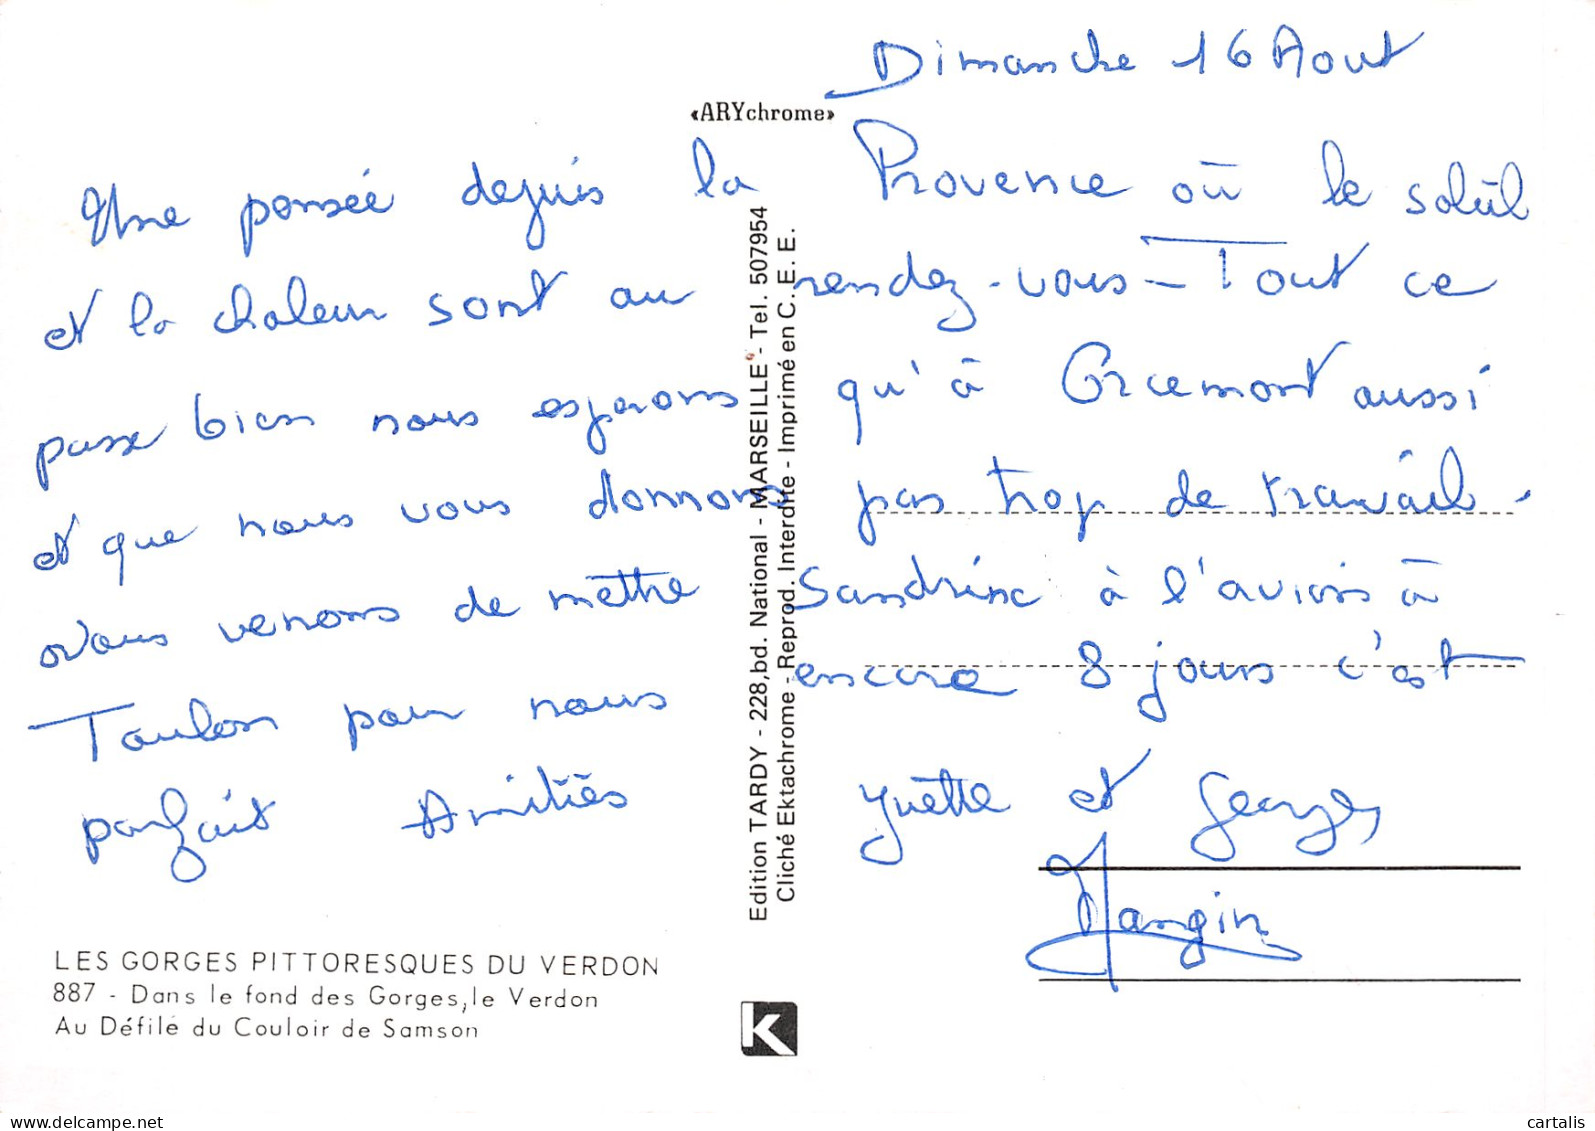 Dimanche 16 Aout
«ARYchrome»
Une pensée depuis la Provence où le soleil
et la chaleur sont au rendez-vous - Tout ce
passe bien nous esperons qu'à Orcemont aussi
et que nous vous donnons pas trop de travail.
Nous venons de mettre Sandrine à l'avion à
Toulon pour nous encore 8 jours c'est
parfait Amitiés Yvette et Georges
Mangin
Edition TARDY - 228, bd. National - MARSEILLE - Tel. 507954
Cliché Ektachrome - Reprod. Interdite - Imprimé en C. E. E.
LES GORGES PITTORESQUES DU VERDON
887 - Dans le fond des Gorges, le Verdon
Au Défilé du Couloir de Samson
K
www.delcampe.net
cartalis